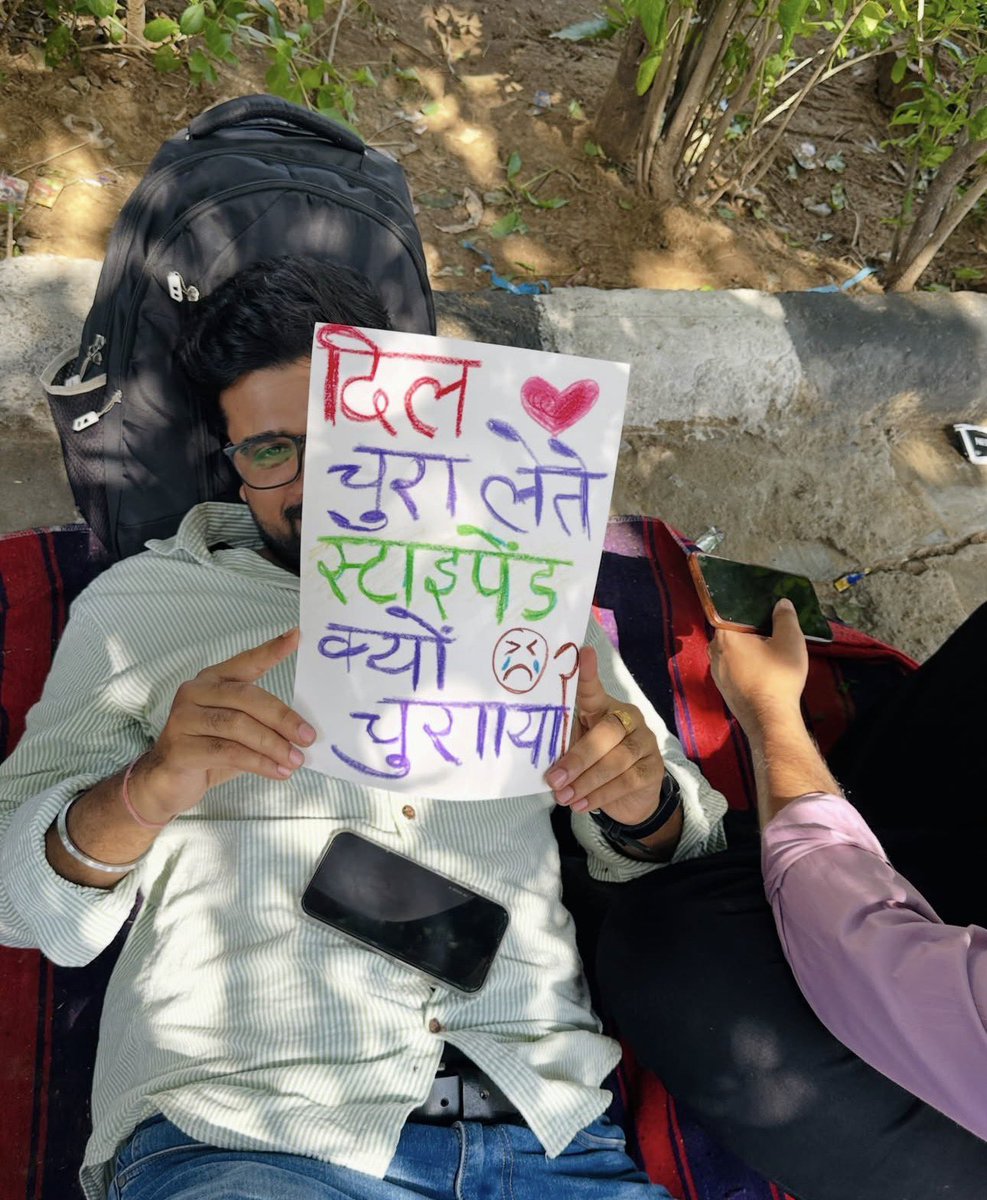 दिल
चुरा लेते
स्टाइपेंड
क्यों
चुराया?